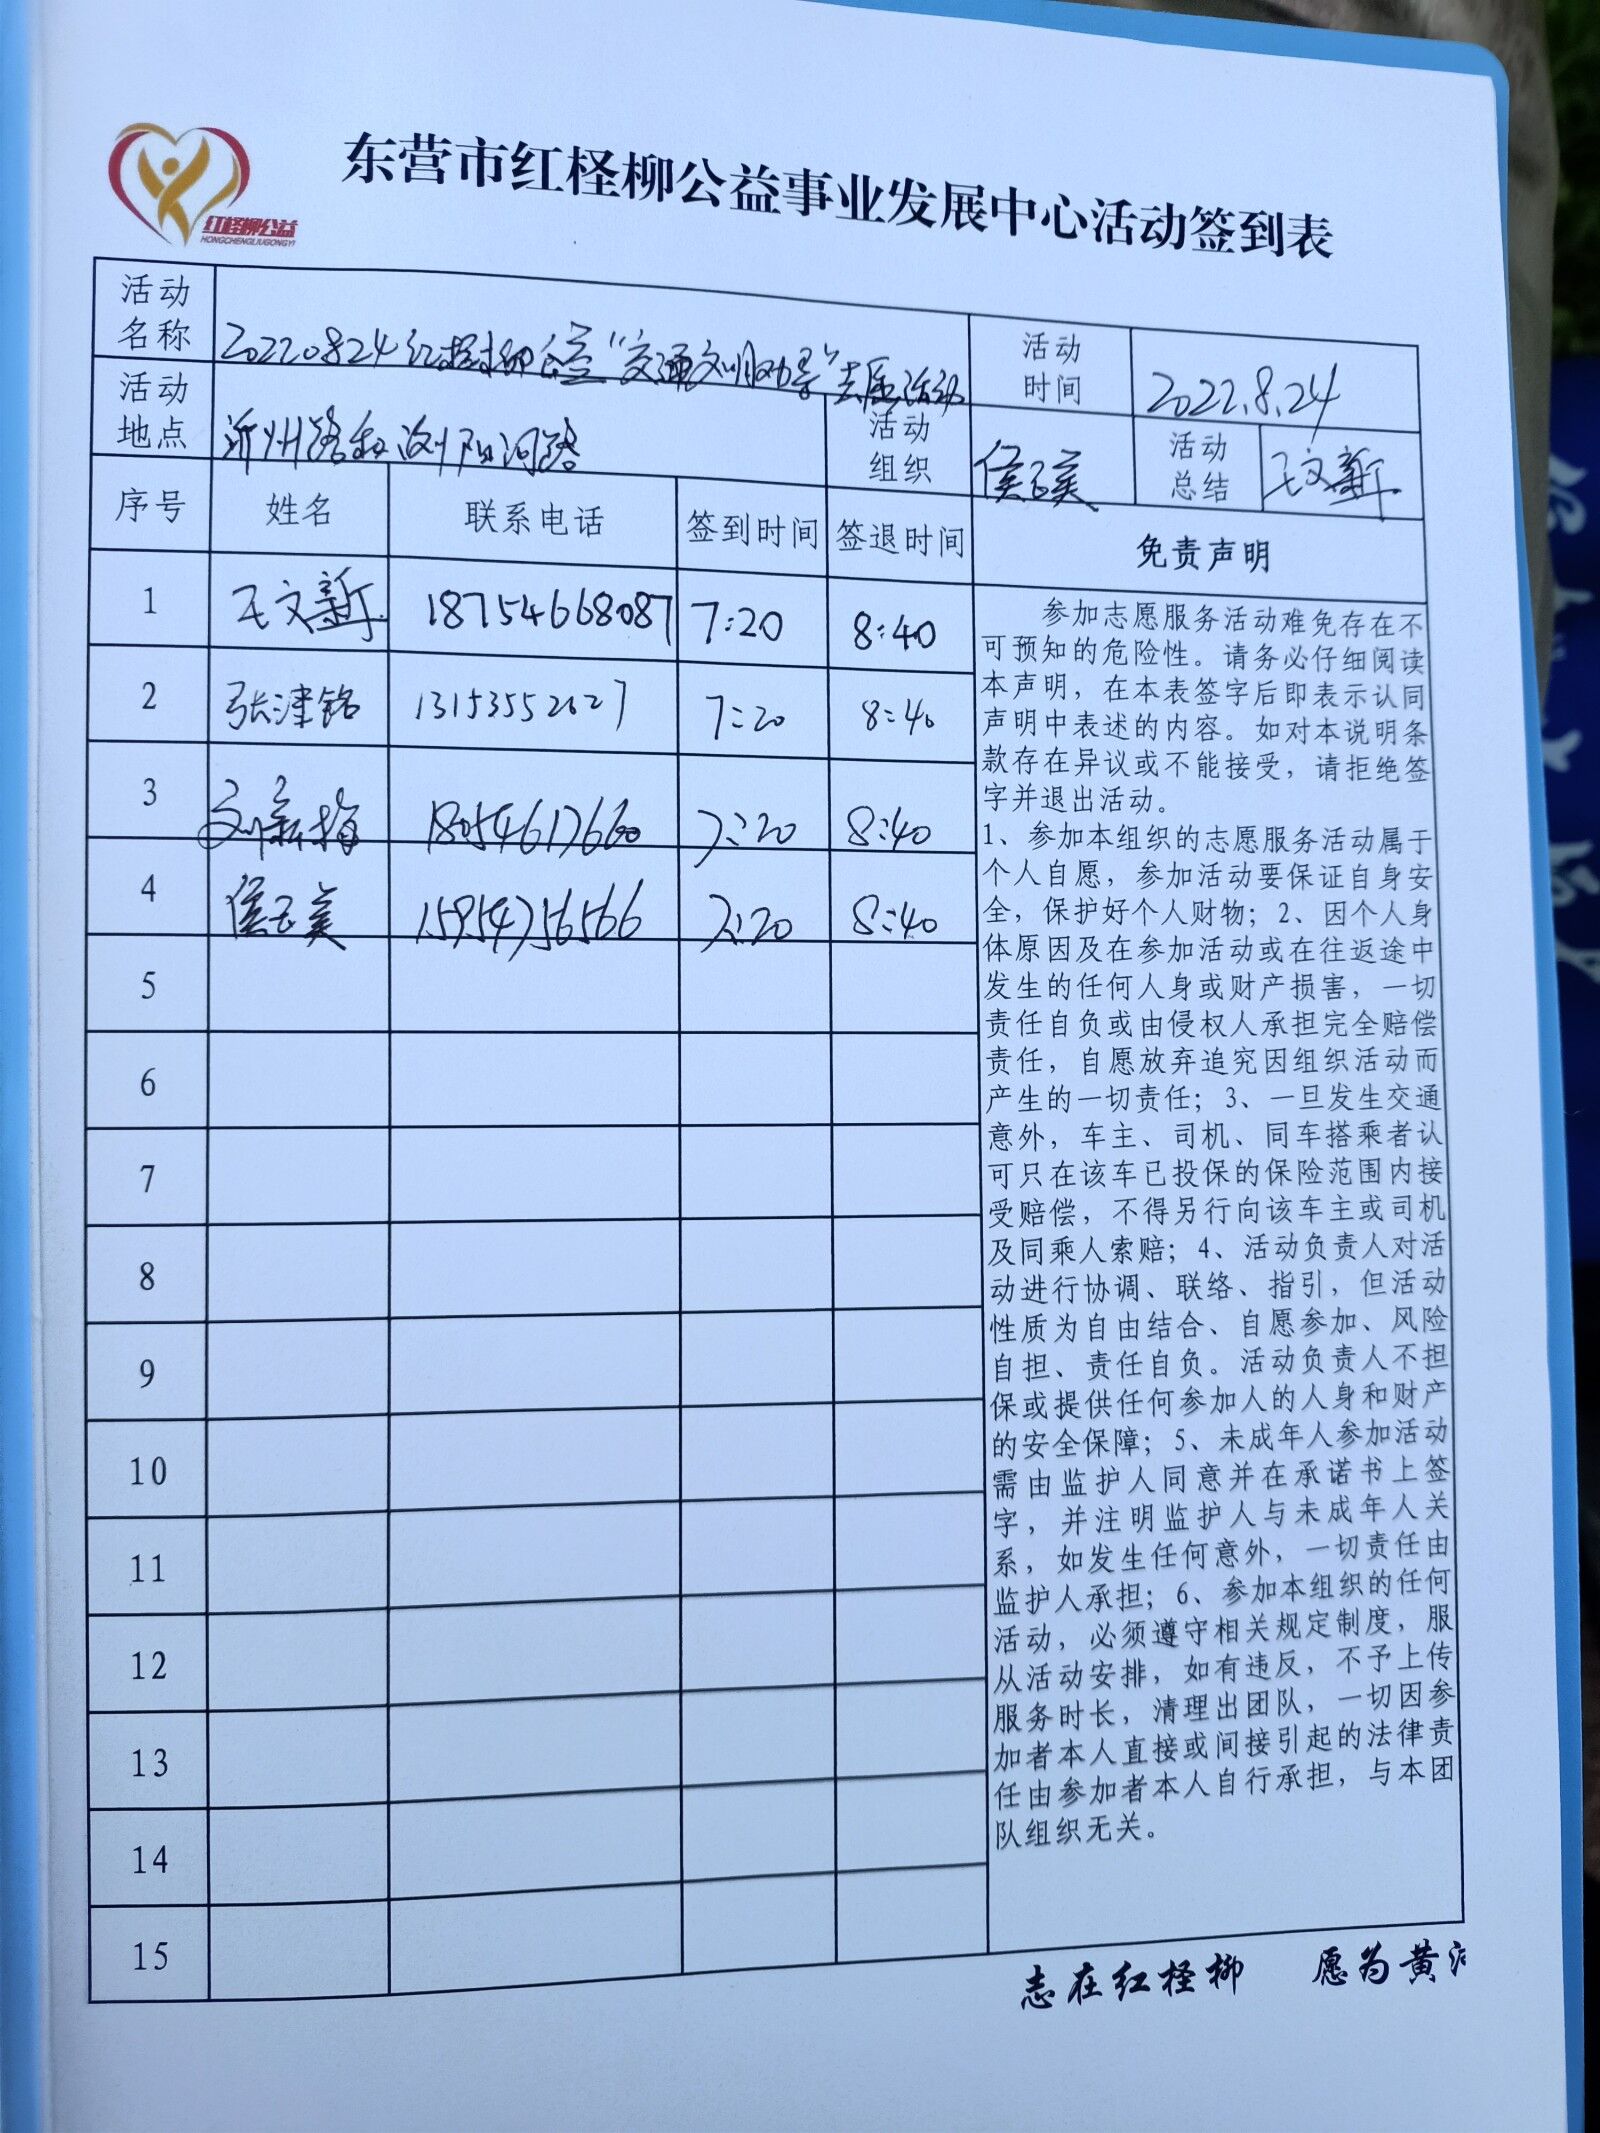 红柽柳公益
HONGCHENGLIUGONGYI
东营市红柽柳公益事业发展中心活动签到表
活动名称 20220824红柽柳公益“交通文明劝导”志愿活动 活动时间 2022.8.24
活动地点 沂州路和浏阳河路 活动组织 侯玉美 活动总结 王文新
序号 姓名 联系电话 签到时间 签退时间 免责声明
1 王文新 18754668087 7:20 8:40
2 张津铭 13153552627 7:20 8:40
3 刘新梅 18054617660 7:20 8:40
4 侯玉美 15954756566 7:20 8:40
5
6
7
8
9
10
11
12
13
14
15
参加志愿服务活动难免存在不
可预知的危险性。请务必仔细阅读
本声明，在本表签字后即表示认同
声明中表述的内容。如对本说明条
款存在异议或不能接受，请拒绝签
字并退出活动。
1、参加本组织的志愿服务活动属于
个人自愿，参加活动要保证自身安
全，保护好个人财物；2、因个人身
体原因及在参加活动或在往返途中
发生的任何人身或财产损害，一切
责任自负或由侵权人承担完全赔偿
责任，自愿放弃追究因组织活动而
产生的一切责任；3、一旦发生交通
意外，车主、司机、同车搭乘者认
可只在该车已投保的保险范围内接
受赔偿，不得另行向该车主或司机
及同乘人索赔；4、活动负责人对活
动进行协调、联络、指引，但活动
性质为自由结合、自愿参加、风险
自担、责任自负。活动负责人不担
保或提供任何参加人的人身和财产
的安全保障；5、未成年人参加活动
需由监护人同意并在承诺书上签
字，并注明监护人与未成年人关
系，如发生任何意外，一切责任由
监护人承担；6、参加本组织的任何
活动，必须遵守相关规定制度，服
从活动安排，如有违反，不予上传
服务时长，清理出团队，一切因参
加者本人直接或间接引起的法律责
任由参加者本人自行承担，与本团
队组织无关。
志在红柽柳 愿为黄河